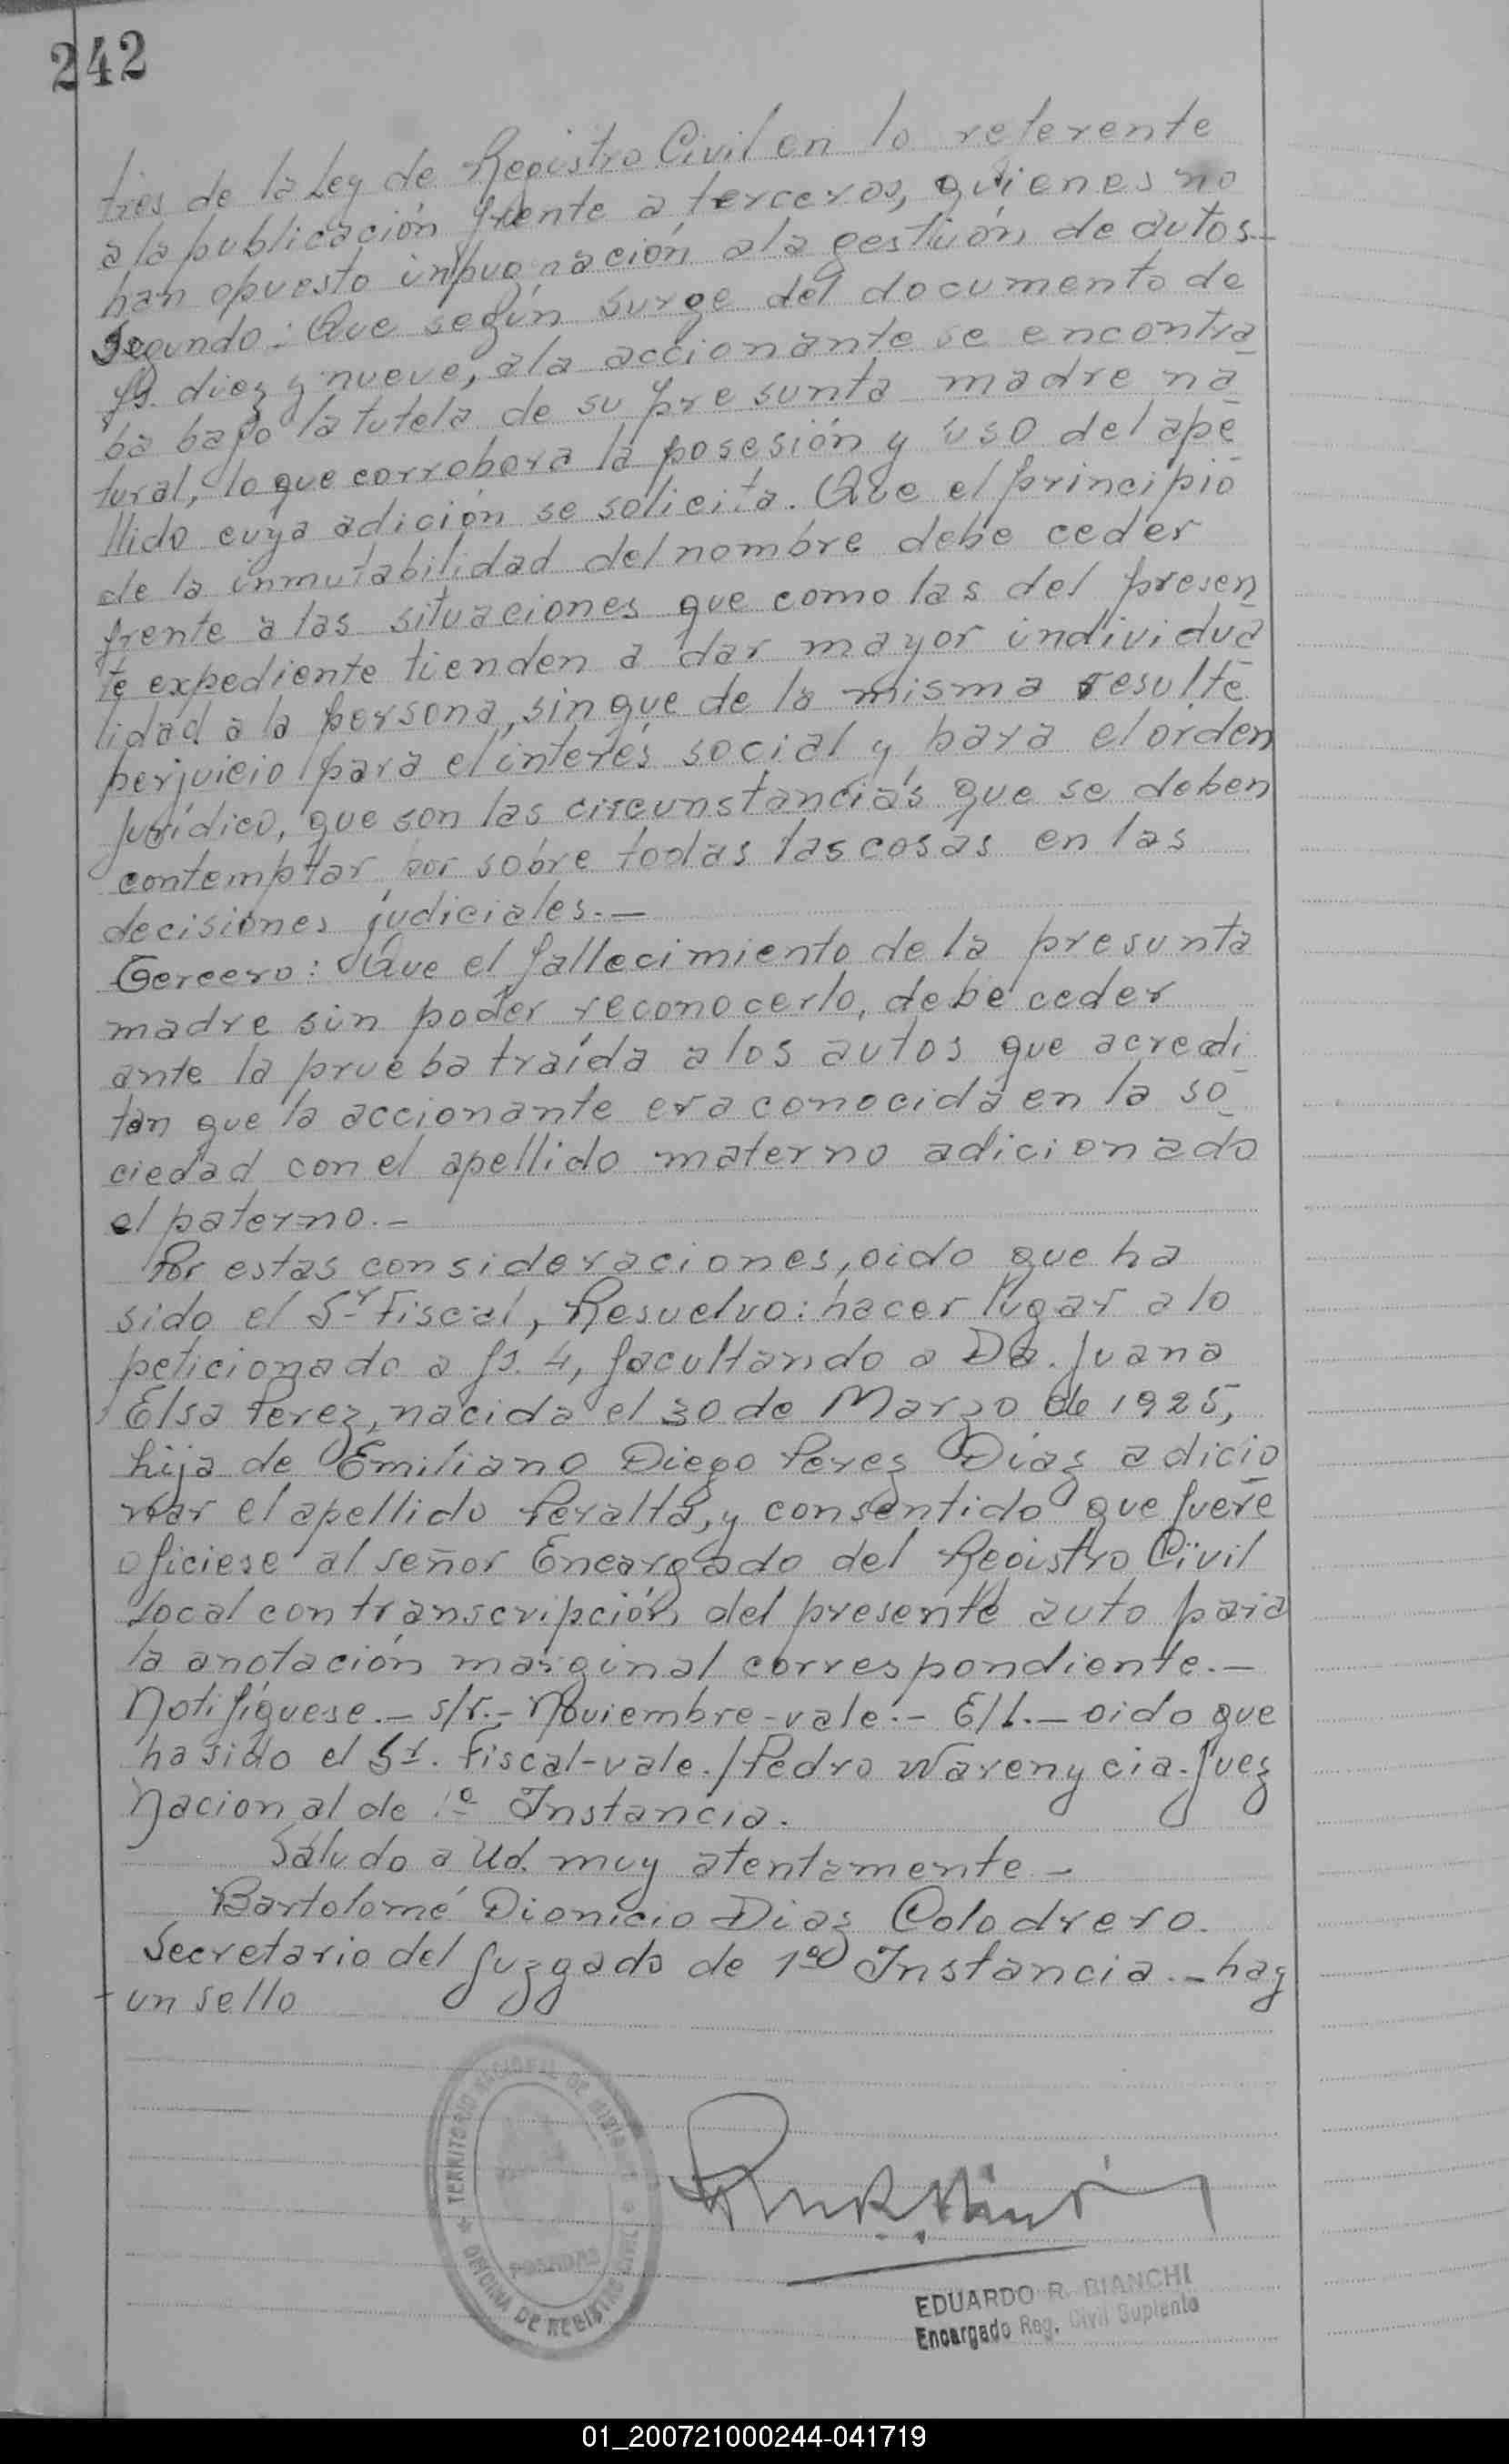 242
tres de la Ley de Registro Civil en lo referente
a la publicación frente a terceros, quienes no
han opuesto inpugnación a la gestión de autos-
Segundo: Que según surge del documento de
fs. diez y nueve, a la accionante se encontra
ba bajo la tutela de su presunta madre na
tural, lo que corrobora la posesión y uso del ape
llido cuya adición se solicita. Que el principio
de la inmutabilidad del nombre debe ceder
frente a las situaciones que como las del presen
te expediente tienden a dar mayor individua
lidad a la persona, sin que de la misma resulte
perjuicio para el interés social y para el orden
jurídico, que son las circunstancias que se deben
contemplar por sobre todas las cosas en las
decisiones judiciales.-
Tercero: Que el fallecimiento de la presunta
madre sin poder reconocerlo, debe ceder
ante la prueba traída a los autos que acredi
tan que la accionante era conocida en la so
ciedad con el apellido materno adicionado
el paterno.-
Por estas consideraciones, oido que ha
sido el Sr Fiscal, Resuelvo: hacer lugar a lo
peticionado a fs. 4, facultando a Da. Juana
Elsa Perez, nacida el 30 de Marzo de 1925,
hija de Emiliano Diego Perez Diaz adicio
nar el apellido Peralta, y consentido que fuere
oficiese al señor Encargado del Registro Civil
local con transcripción del presente auto para
la anotación marginal correspondiente.-
Notifíquese.- s/r.- Noviembre-vale.- E/l.- oido que
ha sido el Sr. Fiscal-vale./Pedro Warenycia. Juez
Nacional de 1a Instancia.
Saludo a Ud. muy atentamente-
Bartolomé Dionicio Diaz Colodrero.
Secretario del Juzgado de 1a Instancia.- hay
un sello
TERRITORIO NACIONAL DE MISIONES
OFICINA DE REGISTRO CIVIL
POSADAS
EDUARDO R. BIANCHI
Encargado Reg. Civil Suplente
01_200721000244-041719